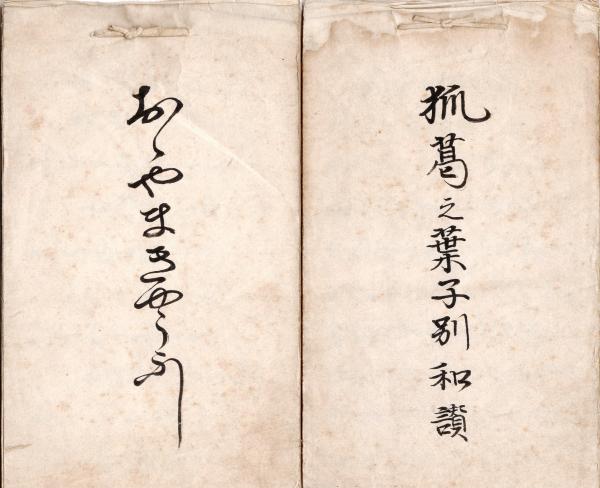 狐葛之葉子別和讃
おゝやまきやうふし